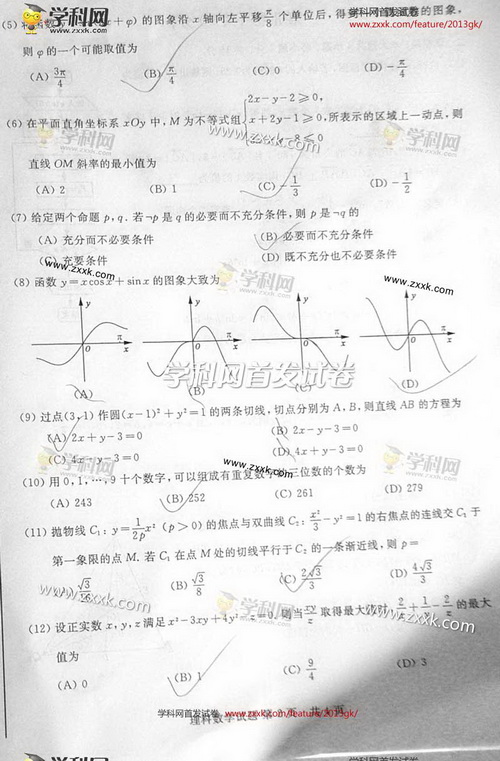 学科网 www.zxxk.com
学科网首发试卷
www.zxxk.com/feature/2013gk/
(5) φ) 的图象沿 x 轴向左平移 π/8 个单位后, 得到 的图象,
则 φ 的一个可能取值为
(A) 3π/4 (B) π/4 (C) 0 (D) -π/4
(6) 在平面直角坐标系 xOy 中, M 为不等式组 { 2x-y-2≥0, x+2y-1≥0, -8≤0 所表示的区域上一动点, 则
直线 OM 斜率的最小值为
(A) 2 (B) 1 (C) -1/3 (D) -1/2
(7) 给定两个命题 p, q. 若 ¬p 是 q 的必要而不充分条件, 则 p 是 ¬q 的
(A) 充分而不必要条件 (B) 必要而不充分条件
(C) 充要条件 (D) 既不充分也不必要条件
www.zxxk.com
(8) 函数 y=xcos x+sin x 的图象大致为
y y y y
π π π π
O x O x O x O x
(A) (B) (C) (D)
学科网首发试卷
(9) 过点(3,1) 作圆(x-1)²+y²=1 的两条切线, 切点分别为 A, B, 则直线 AB 的方程为
(A) 2x+y-3=0 (B) 2x-y-3=0
(C) 4x-y-3=0 (D) 4x+y-3=0
学科网 www.zxxk.com
(10) 用 0,1,…,9 十个数字, 可以组成有重复数字的三位数的个数为
(A) 243 (B) 252 (C) 261 (D) 279
(11) 抛物线 C₁: y=1/2p x² (p>0) 的焦点与双曲线 C₂: x²/3-y²=1 的右焦点的连线交 C₁ 于
第一象限的点 M. 若 C₁ 在点 M 处的切线平行于 C₂ 的一条渐近线, 则 p=
(B) √3/8 (C) 2√3/3 (D) 4√3/3
www.zxxk.com
学科网 www.zxxk.com
(12) 设正实数 x, y, z 满足 x²-3xy+4y² =0. 则当 取得最大值时, 2/x+1/y-2/z 的最大
值为
(A) 0 (B) 1 (C) 9/4 (D) 3
www.zxxk.com
理科数学试题 页 共 页
学科网首发试卷 www.zxxk.com/feature/2013gk/
学科网 www.zxxk.com